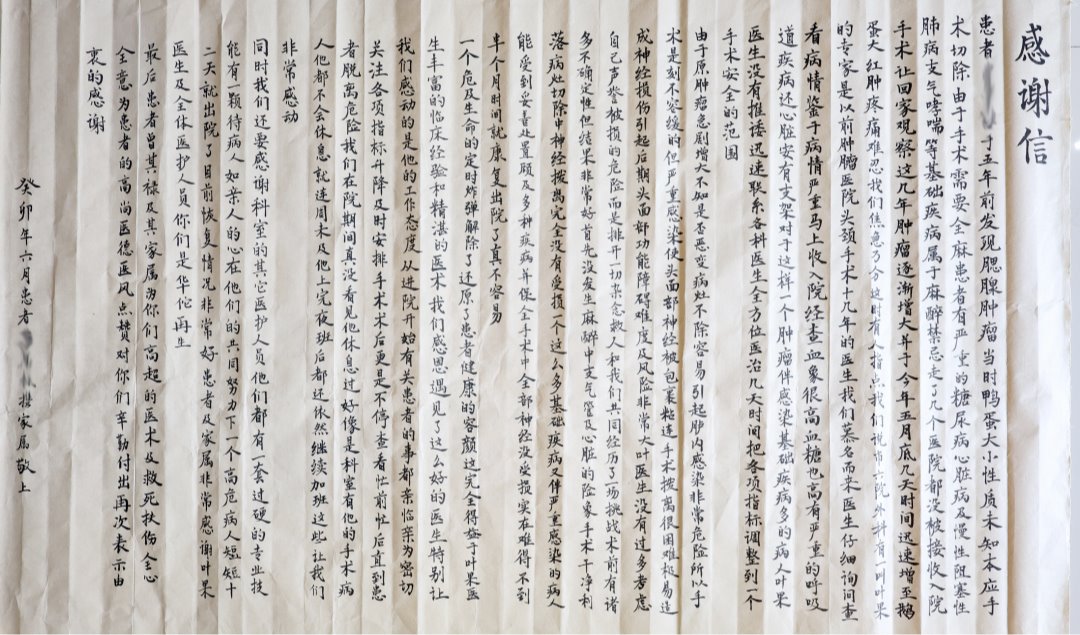 感谢信
患者 于五年前发现腮腺肿瘤当时鸭蛋大小性质未知本应手
术切除由于手术需要全麻患者有严重的糖尿病心脏病及慢性阻塞性
肺病支气哮喘等基础疾病属于麻醉禁忌走了几个医院都没被接收入院
手术让回家观察这几年肿瘤逐渐增大并于今年五月底几天时间迅速增至鹅
蛋大红肿疼痛难忍我们焦急万分这时有人指点我们说省六院外科有一叫叶果
的专家是以前肿瘤医院头颈手术十几年的医生我们慕名而来医生仔细询问查
看病情鉴于病情严重马上收入院经查血象很高血糖也高有严重的呼吸
道疾病还心脏安有支架对于这样一个肿瘤伴感染基础疾病多的病人叶果
医生没有推诿迅速联系各科医生全方位医治几天时间把各项指标调整到一个
手术安全的范围
由于原肿瘤急剧增大不知是否恶变病灶不除容易引起肺内感染非常危险所以手
术是刻不容缓的但严重感染使头面部神经被包裹粘连手术拨离很困难极易造
成神经损伤引起后期头面部功能障碍难度及风险非常大叶医生没有过多考虑
自己声誉被损的危险而是排开一切杂念救人和我们共同经历了一场挑战术前有诸
多不确定性但结果非常好首先没发生麻醉中支气管及心脏的险象手术干净利
落病灶切除中神经拨离完全没有受损一个这么多基础疾病又伴严重感染的病人
能受到妥善处置顾及多种疾病并保全手术中全部神经没受损实在难得不到
半个月时间就康复出院了真不容易
一个危及生命的定时炸弹解除了还原了患者健康的容颜这完全得益于叶果医
生丰富的临床经验和精湛的医术我们感恩遇见了这么好的医生特别让
我们感动的是他的工作态度从进院开始有关患者的事都亲临亲为密切
关注各项指标升降及时安排手术术后更是不停查看忙前忙后直到患
者脱离危险我们在院期间真没看见他休息过好像是科室有他的手术病
人他都不会休息就连周末及他上完夜班后都还依然继续加班这些让我们
非常感动
同时我们还要感谢科室的其它医护人员他们都有一套过硬的专业技
能有一颗待病人如亲人的心在他们的共同努力下一个高危病人短短十
二天就出院了目前恢复情况非常好患者及家属非常感谢叶果
医生及全体医护人员你们是华佗再生
最后患者曾其禄及其家属为你们高超的医术及救死扶伤全心
全意为患者的高尚医德医风点赞对你们辛勤付出再次表示由
衷的感谢
癸卯年六月患者 携家属敬上